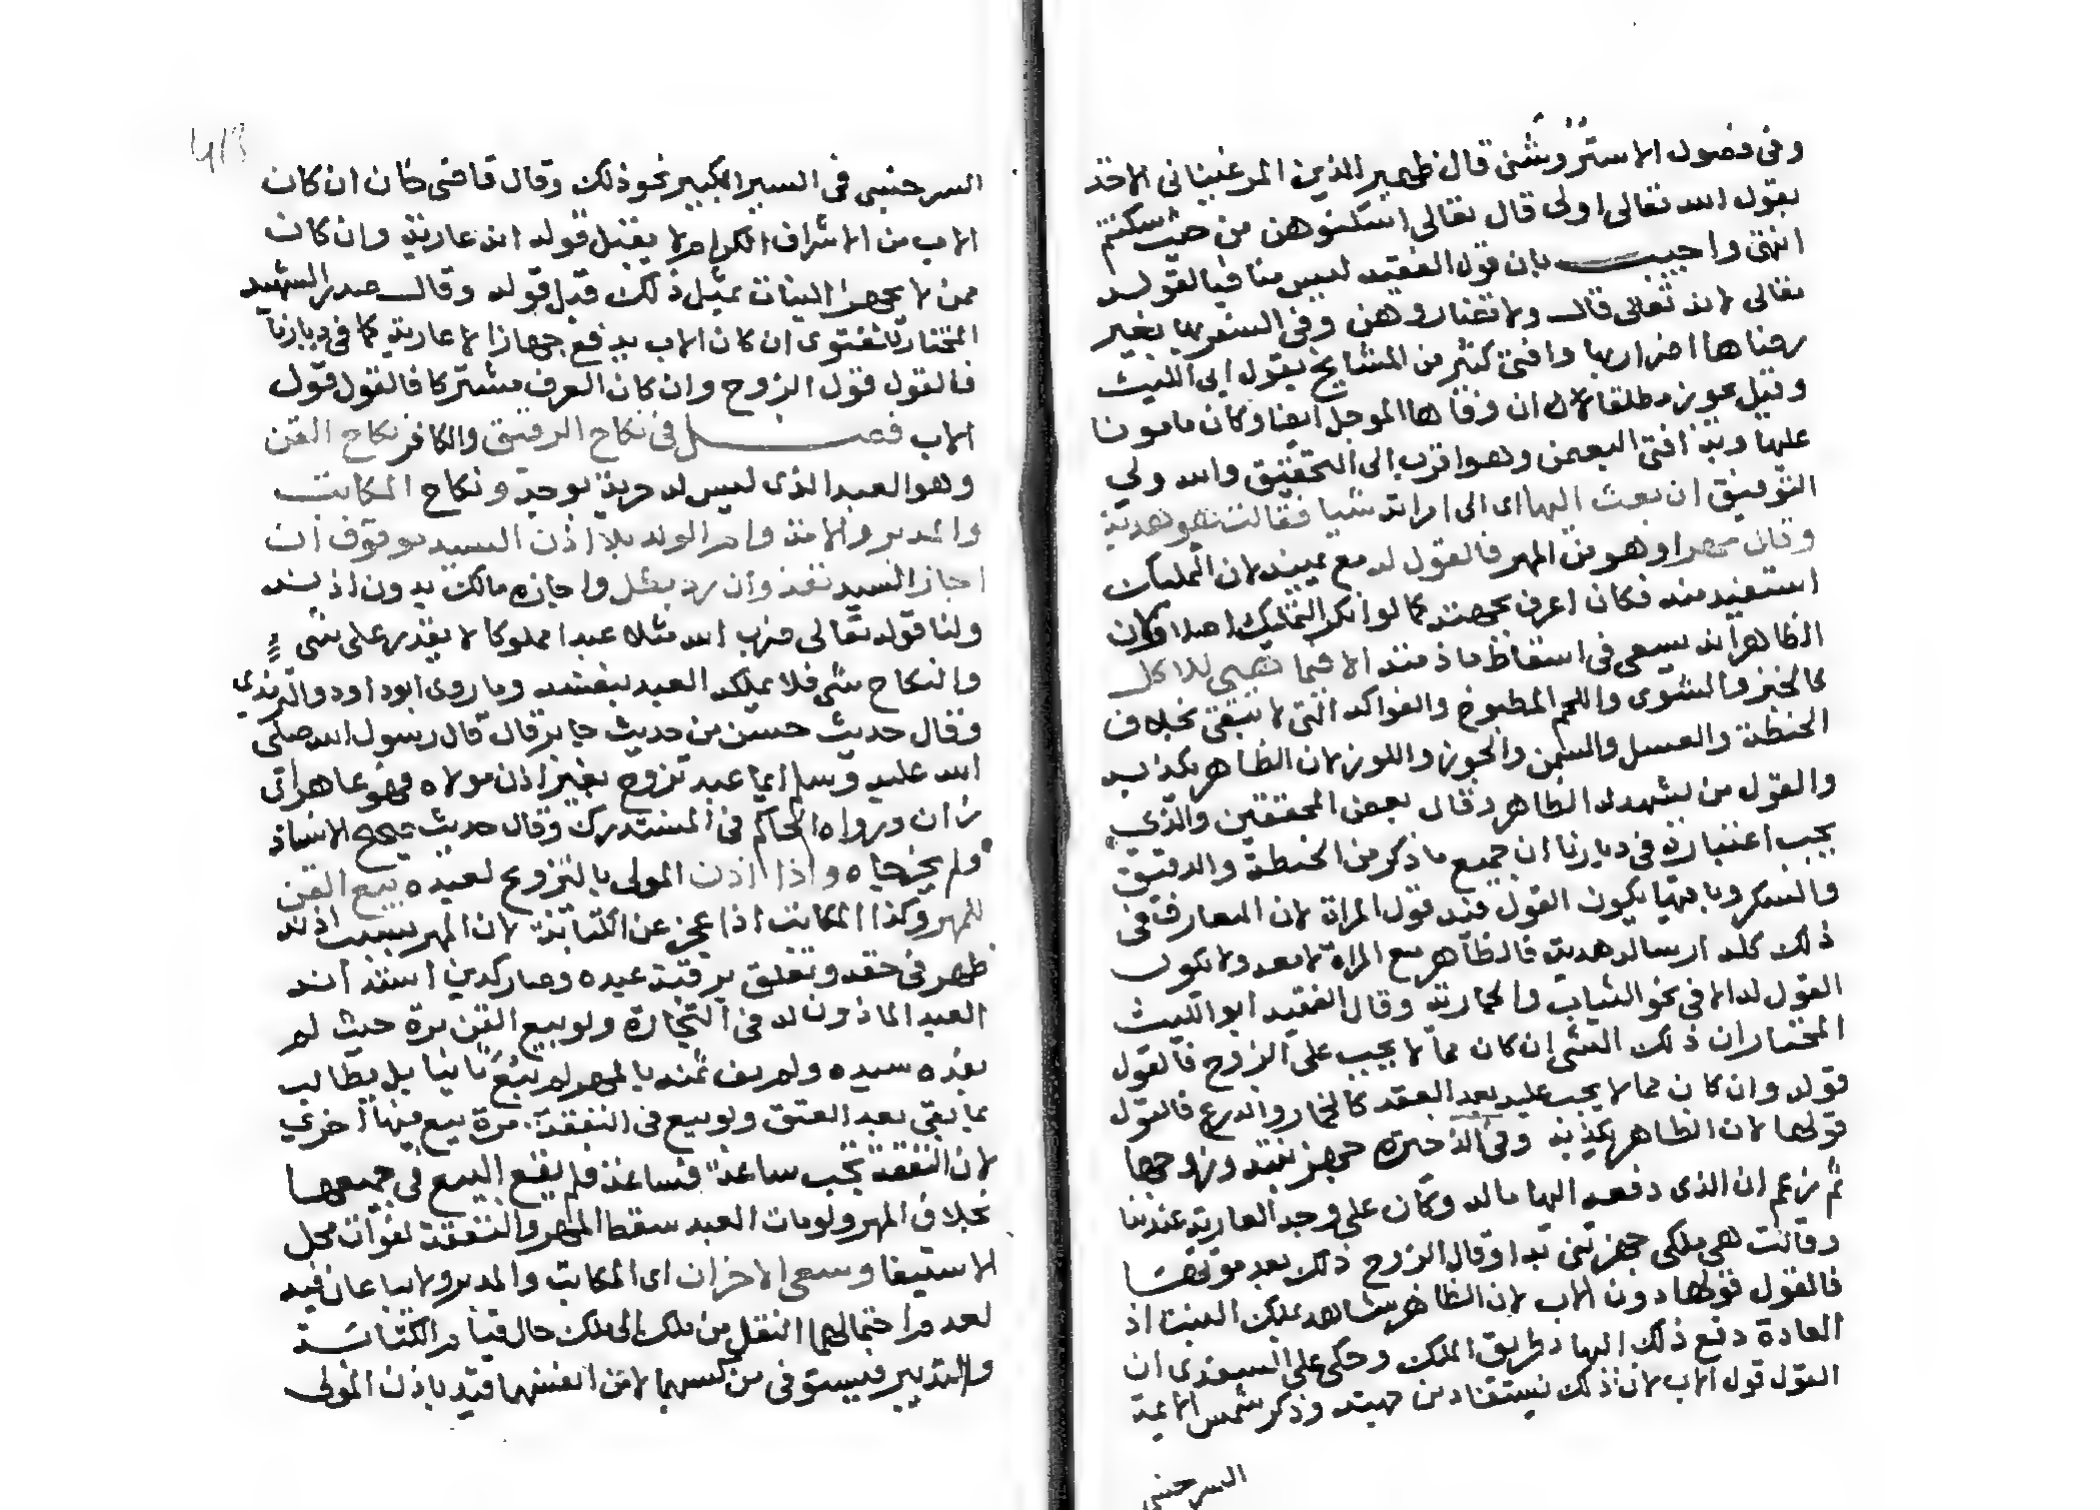 وفى فصول الاستروشنى قال ظهير الدين المرغينانى الاخذ
بقول الله تعالى اولى قال تعالى اسكنوهن من حيث سكنتم
انتهى واجيب بان قول الفقيه ليس منافيا لقوله
تعالى لانه تعالى قال ولا تضاروهن وفى السفر بها بغير
رضاها اضرار بها وافتى كثير من المشايخ بقول ابى الليث
وقيل يجوز مطلقا لان ان وفاها الموجل ايضا وكان مامونا
عليها وبه افتى البعض وهو اقرب الى التحقيق والله ولي
التوفيق ان بعث اليها اى الى امراته شيا فقالت هو هدية
وقال مهرا وهو من المهر فالقول له مع يمينه لان التمليك
استفيد منه فكان اعرف بجهته كما لو انكر التمليك اصلا وكان
الظاهر انه يسعى فى اسقاط ما ذمته الا فيما تهيى للاكل
كالخبز والشوى واللحم المطبوخ والفواكه التى لا تبقى بخلاف
الحنطة والعسل والسمن والجوز واللوز لان الظاهر يكذبه
والقول من يشهد له الظاهر وقال بعض المحققين والذي
يجب اعتباره فى ديارنا ان جميع ما ذكر من الحنطة والدقيق
والسكر وباقيها يكون القول فيه قول المراة لان المعارف فى
ذلك كله ارساله هدية فالظاهر مع المراة لا معه ولا يكون
القول له الا فى نحو الثياب والجارية وقال الفقيه ابو الليث
المختار ان ذلك الشى ان كان مما لا يجب على الزوج فالقول
قوله وان كان مما لا يجب عليه بعد العقد كالخمار والدرع فالقول
قولها لان الظاهر يكذبه وفى الذخيرة جهز بنته وزوجها
ثم زعم ان الذى دفعه اليها ماله وكان على وجه العارية عندنا
وقالت هي ملكى جهزتنى به او قال الزوج ذلك بعد موتها
فالقول قولها دون الاب لان الظاهر شاهد بملك البنت اذ
العادة دفع ذلك اليها بطريق الملك وحكى على السغدى ان
القول قول الاب لان ذلك يستفاد من جهته وذكر شمس الائمة
السرخسى
السرخسى فى السير الكبير نحو ذلك وقال قاضى خان ان كان
الاب من الاشراف الكرام لا يقبل قوله انه عارية وان كان
ممن لا يجهز البنات بمثل ذلك قبل قوله وقال صدر الشهيد
المختار للفتوى ان كان الاب يدفع جهازا لا عارية كما فى ديارنا
فالقول قول الزوج وان كان العرف مشتركا فالقول قول
الاب فصل فى نكاح الرقيق والكافر نكاح القن
وهو العبد الذى ليس له حرية بوجه ونكاح المكاتب
والمدبر والامة وام الولد بلا اذن السيد موقوف ان
اجاز السيد نفذ وان رد بطل واجازه مالك بدون اذنه
ولنا قوله تعالى ضرب الله مثلا عبدا مملوكا لا يقدر على شى
والنكاح شى فلا يملكه العبد بنفسه وما روى ابو داود والترمذى
وقال حديث حسن من حديث جابر قال قال رسول الله صلى
الله عليه وسلم ايما عبد تزوج بغير اذن مولاه فهو عاهر اى
زان ورواه الحاكم فى المستدرك وقال حديث صحيح الاسناد
ولم يخرجاه واذا اذن المولى بالتزوج لعبده بيع القن
للمهر وكذا المكاتب اذا عجز عن الكتابة لان المهر بسبب اذنه
ظهر فى حقه وتعلق برقبة عبده وصار كدين استدانه
العبد الماذون له فى التجارة ولو بيع القن مرة حيث لم
يفده سيده ولم يف ثمنه بالمهر لم يبع ثانيا بل يطالب
بما بقى بعد العتق ولو بيع فى النفقة مرة بيع فيها اخرى
لان النفقة تجب ساعة فساعة فلم يقع البيع فى جميعها
بخلاف المهر ولو مات العبد سقط المهر والنفقة لفوات محل
الاستيفا وسعى الاخران اى المكاتب والمدبر ولا يباعان فيه
لعدم احتمالهما النقل من ملك الى ملك حال قيام الكتابة
والتدبير فيستوفى من كسبهما لا من انفسهما قيد باذن المولى